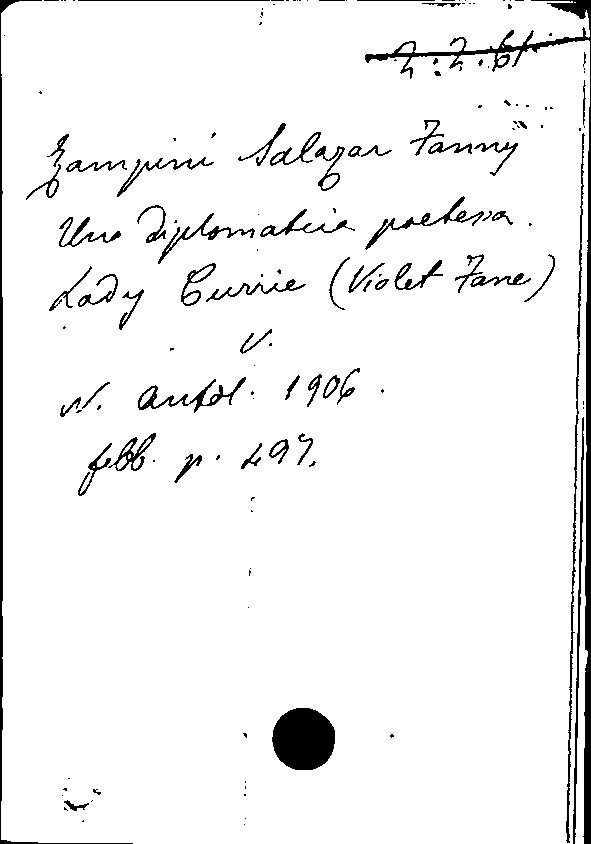 2.2.61
Zampini Salazar Fanny
Una diplomatica poetessa.
Lady Currie (Violet Fane)
V.
N. Antol. 1906.
febb. p. 497.